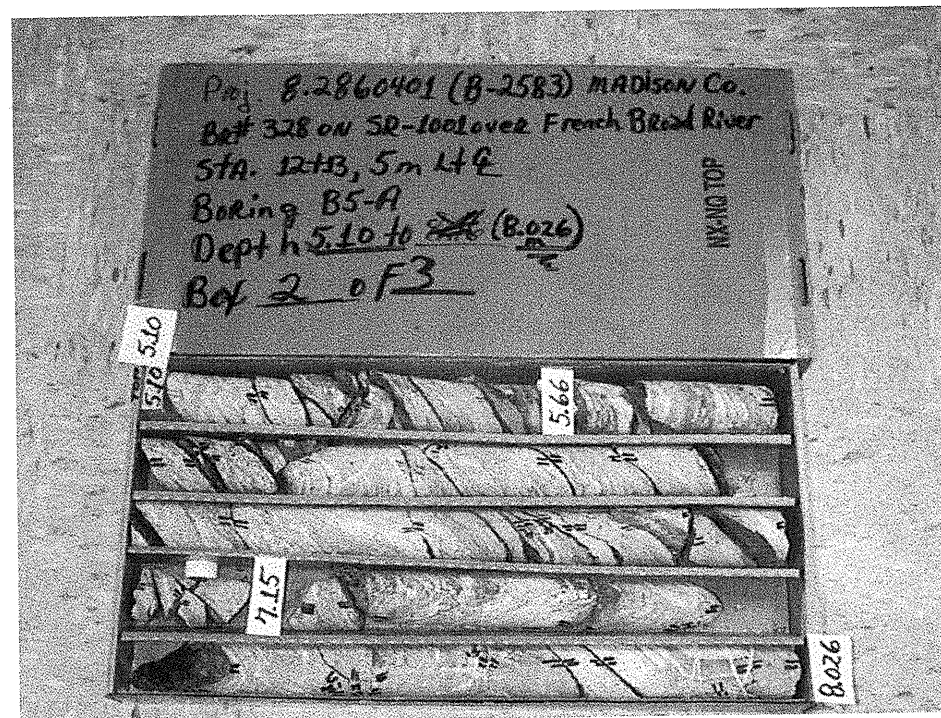 Proj. 8.2860401 (B-2583) MADISON Co.
Br# 328 ON SR-1001 over French Broad River
StA. 12+13, 5m Lt ℄
Boring B5-A
Depth 5.10 to (8.026)
m
Box 2 oF 3
NX-NQ TOP
5.10
TOP
5.10
5.66
7.15
8.026